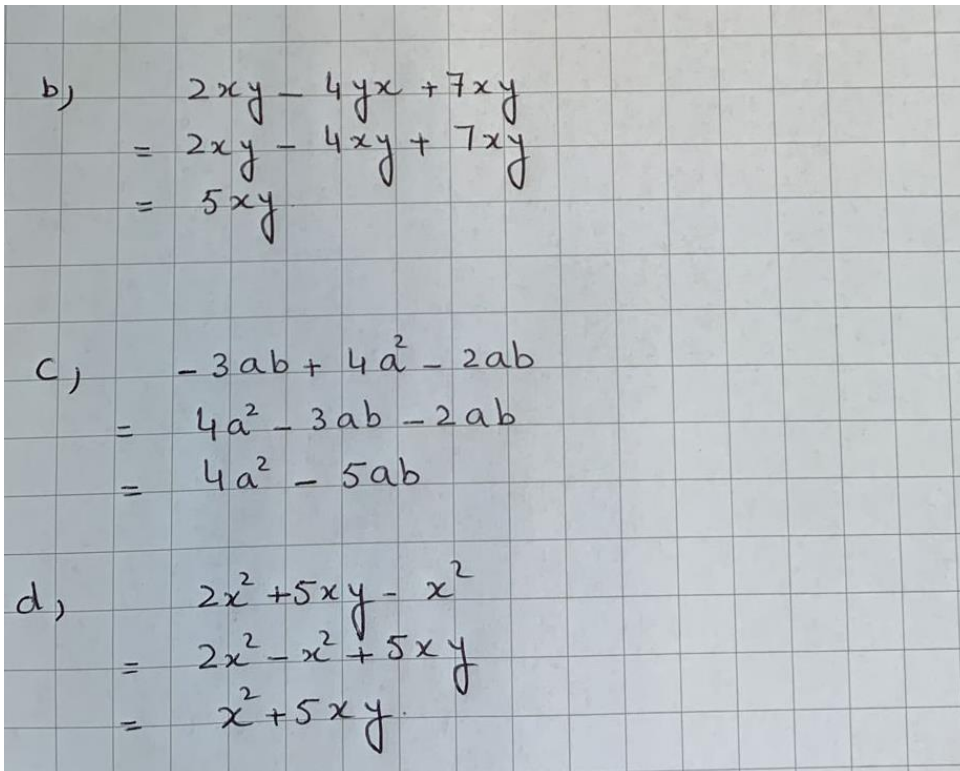 b) 2xy - 4yx + 7xy
= 2xy - 4xy + 7xy
= 5xy.
c) - 3ab + 4a² - 2ab
= 4a² - 3ab - 2ab
= 4a² - 5ab
d) 2x² + 5xy - x²
= 2x² - x² + 5xy
= x² + 5xy.